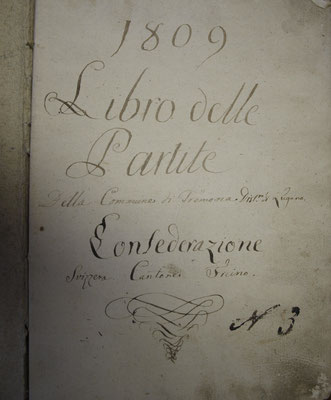 1809
Libro delle
Partite
Della Communes di Tremona Dist.to di Lugano
Confederazione
Svizzera Cantone Ticino.
N 3